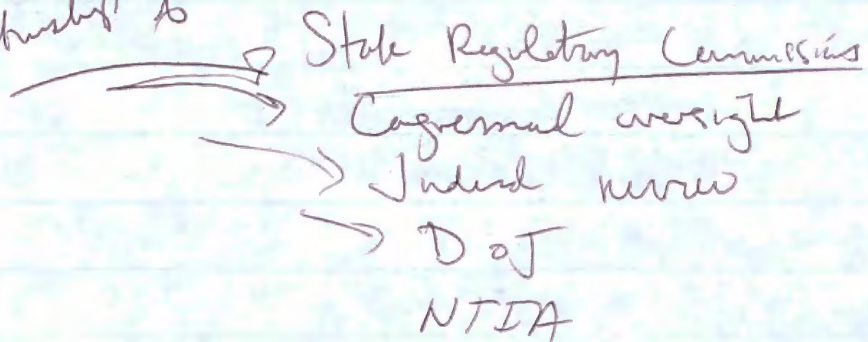 to
State Regulatory Commissions
Congressional oversight
Judicial review
DoJ
NTIA